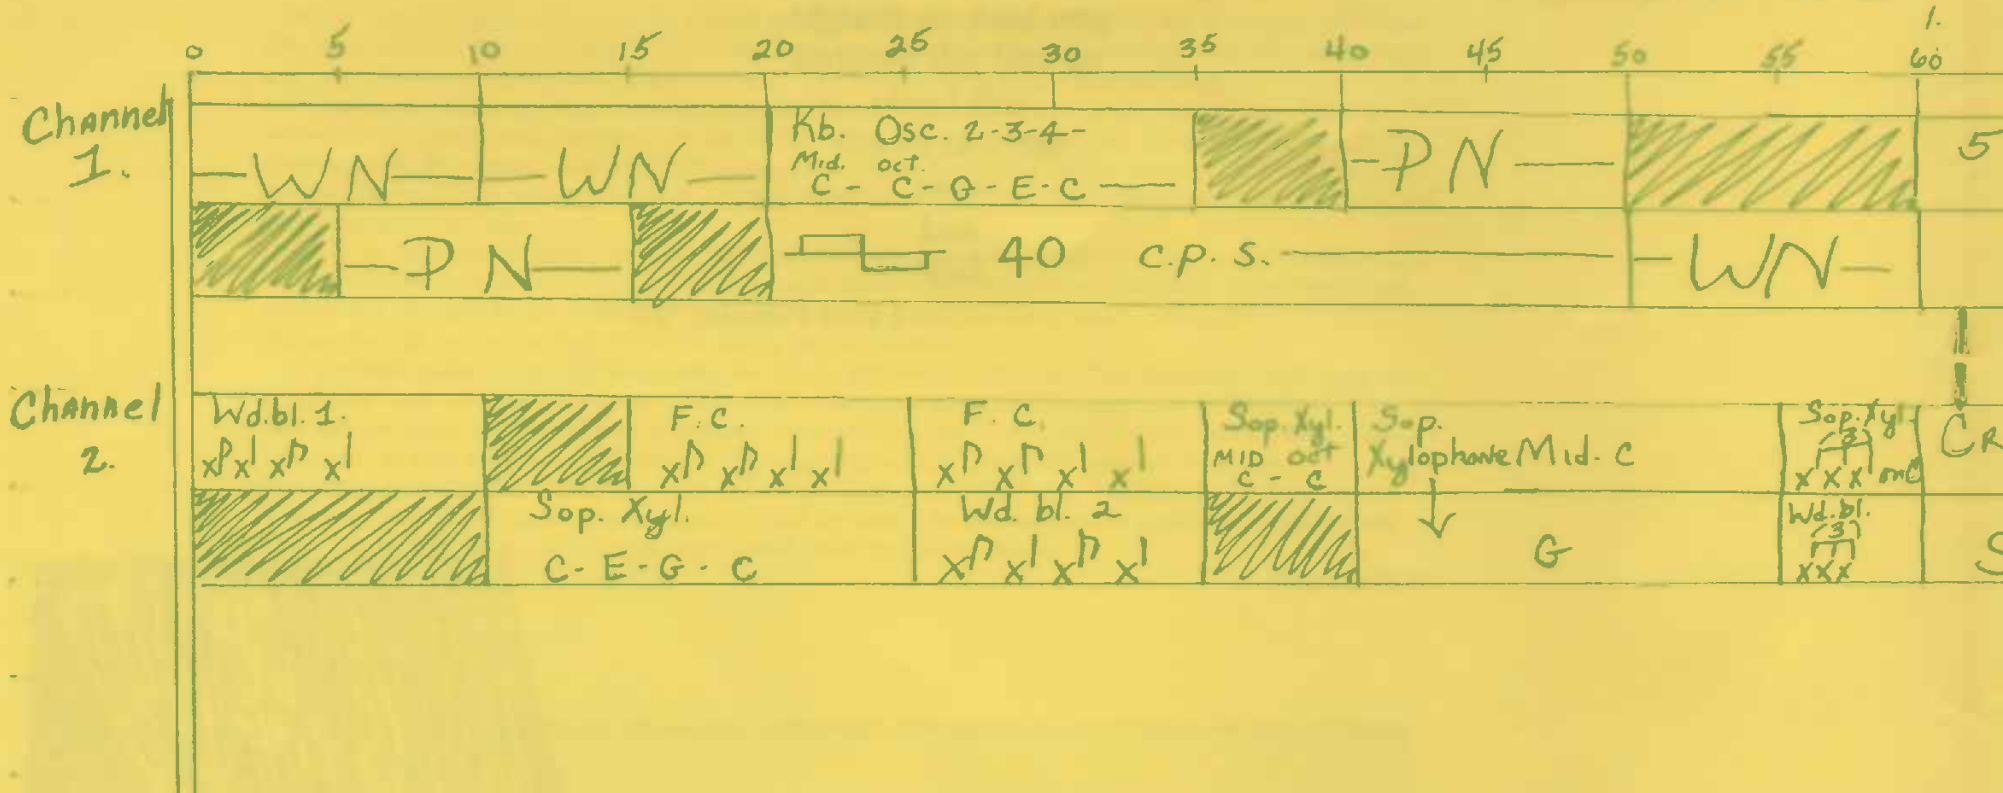 1.
0 5 10 15 20 25 30 35 40 45 50 55 60
Channel
1.
WN WN
Kb. Osc. 2-3-4-
Mid. oct.
C - C - G - E - C
PN
5
PN
40 C.P.S.
WN
Channel
2.
Wd. bl. 1.
F. C.
F. C.
Sop. Xyl.
MID oct
C - C
Sop.
Xylophone Mid. C
Sop. Xyl.
3
x x x on C
CR
Sop. Xyl.
C - E - G - C
Wd. bl. 2
G
Wd. bl.
3
xxx
S